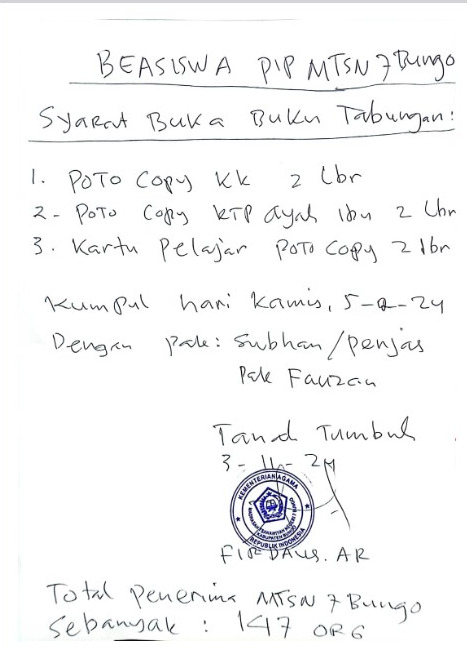 BEASISWA PIP MTSN 7 Bungo
Syarat Buka Buku Tabungan:
1. POTO Copy KK 2 lbr
2- POTO Copy KTP Ayah ibu 2 lbr
3. Kartu Pelajar POTO COPY 2 lbr
Kumpul hari Kamis, 5- -24
Dengan pak: Subhan/penjas
Pak Fauzan
Tanah Tumbuh
3- - 24
KEMENTERIAN AGAMA
KABUPATEN BUNGO
REPUBLIK INDONESIA
FIRDAUS. AR
Total Penerima MTSN 7 Bungo
Sebanyak : 147 ORG